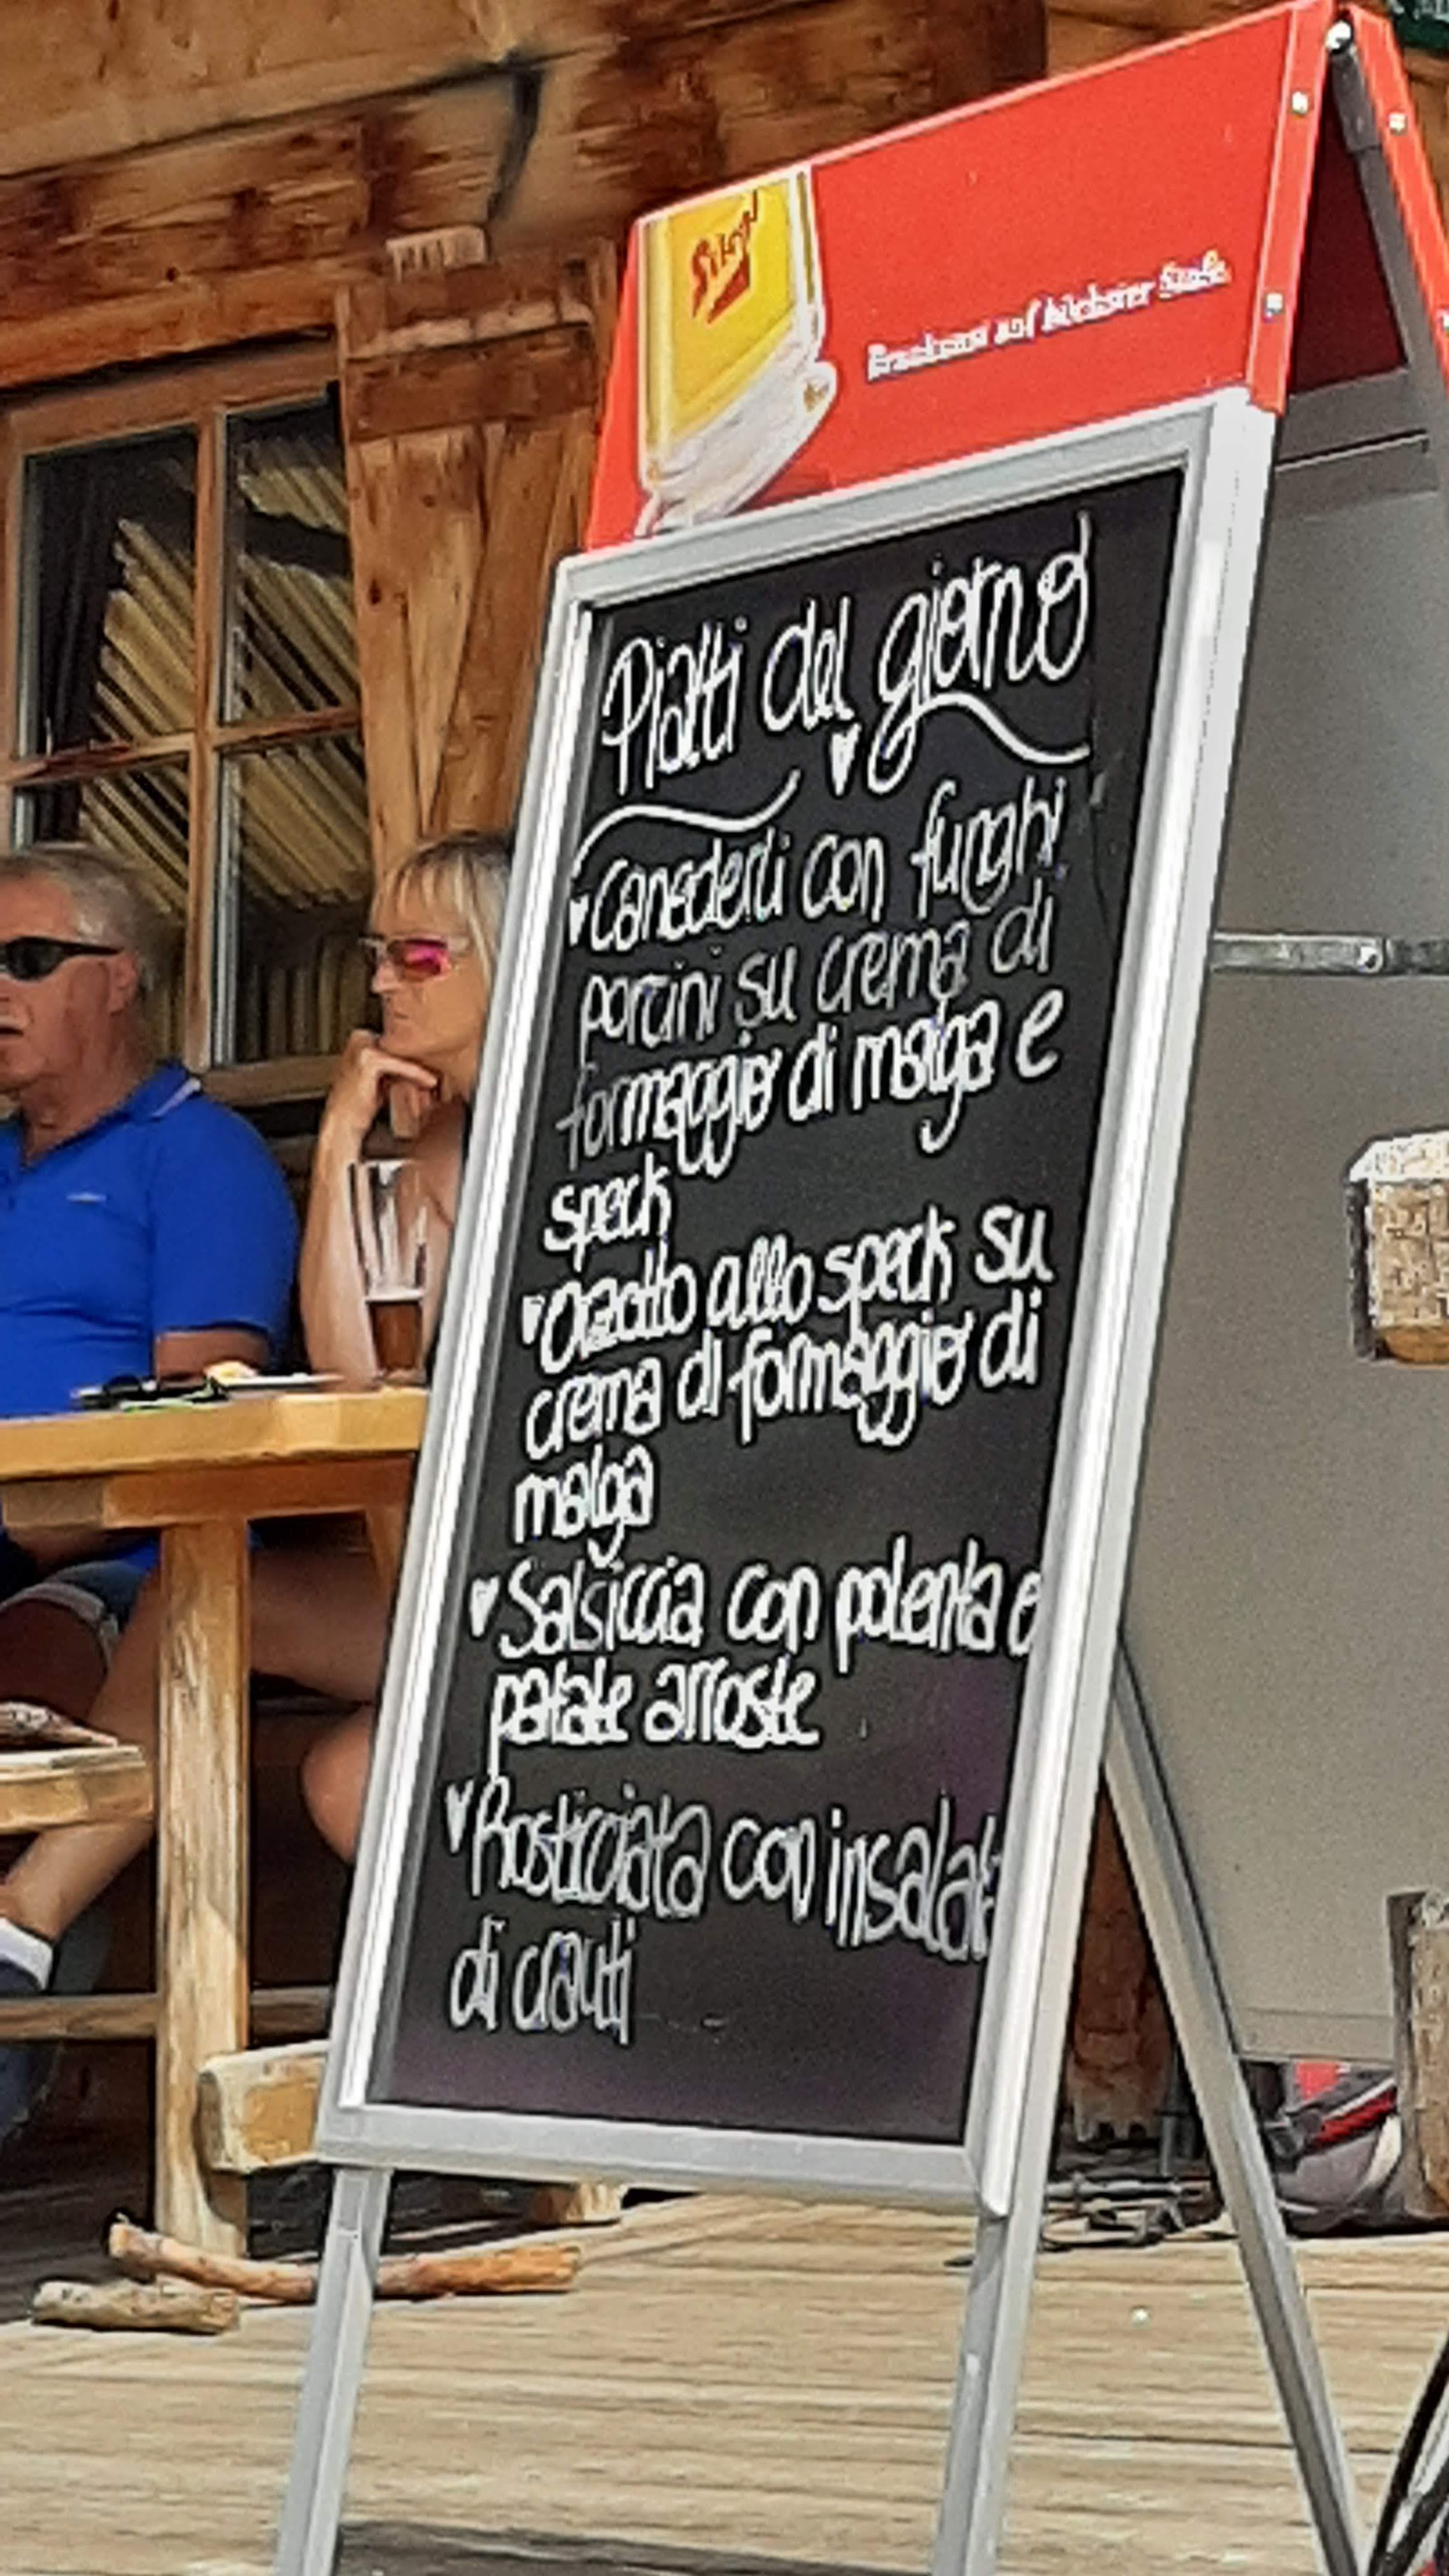 Stiegl
Braukunst auf höchster Stufe.
Piatti del giorno
Canederli con funghi
porcini su crema di
formaggio di malga e
speck
Orzotto allo speck su
crema di formaggio di
malga
Salsiccia con polenta e
patate arroste
Rosticiata con insalata
di crauti